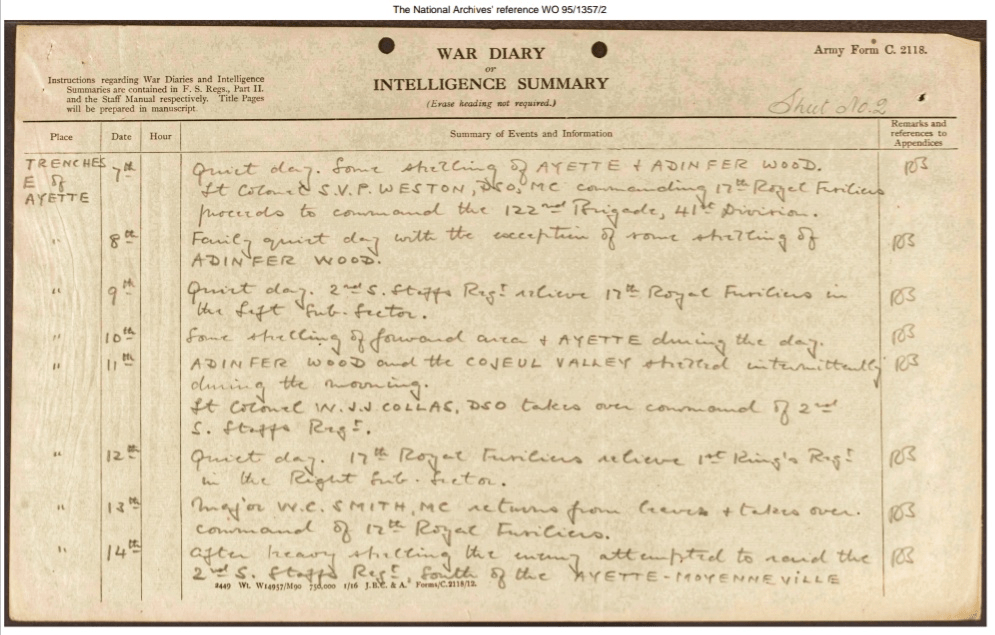 The National Archives' reference WO 95/1357/2
Army Form C. 2118.
WAR DIARY
or
INTELLIGENCE SUMMARY
(Erase heading not required.)
Instructions regarding War Diaries and Intelligence
Summaries are contained in F. S. Regs., Part II.
and the Staff Manual respectively. Title Pages
will be prepared in manuscript.
Sheet No. 2
Place Date Hour Summary of Events and Information Remarks and references to Appendices
TRENCHES E of AYETTE
7th Quiet day. Some shelling of AYETTE + ADINFER WOOD.
Lt Colonel S.V.P. WESTON, DSO, MC commanding 17th Royal Fusiliers
proceeds to command the 122nd Brigade, 41st Division.
" 8th Fairly quiet day with the exception of some shelling of
ADINFER WOOD.
" 9th Quiet day. 2nd S. Staffs Regt relieve 17th Royal Fusiliers in
the Left Sub-Sector.
" 10th Some shelling of forward area + AYETTE during the day.
" 11th ADINFER WOOD and the COJEUL VALLEY shelled intermittently
during the morning.
Lt Colonel W.J.J. COLLAS, DSO takes over command of 2nd
S. Staffs Regt.
" 12th Quiet day. 17th Royal Fusiliers relieve 1st King's Regt
in the Right Sub-Sector.
" 13th Major W.C. SMITH, MC returns from leave + takes over
command of 17th Royal Fusiliers.
" 14th After heavy shelling the enemy attempted to raid the
2nd S. Staffs Regt South of the AYETTE-MOYENNEVILLE
2449 Wt. W14957/M90 750,000 1/16 J.B.C. & A. Forms/C.2118/12.